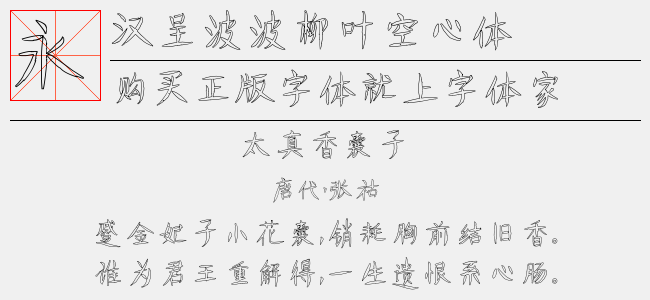 永
汉呈波波柳叶空心体
购买正版字体就上字体家
太真香囊子
唐代·张祜
蹙金妃子小花囊,销耗胸前结旧香。
谁为君王重解得,一生遗恨系心肠。